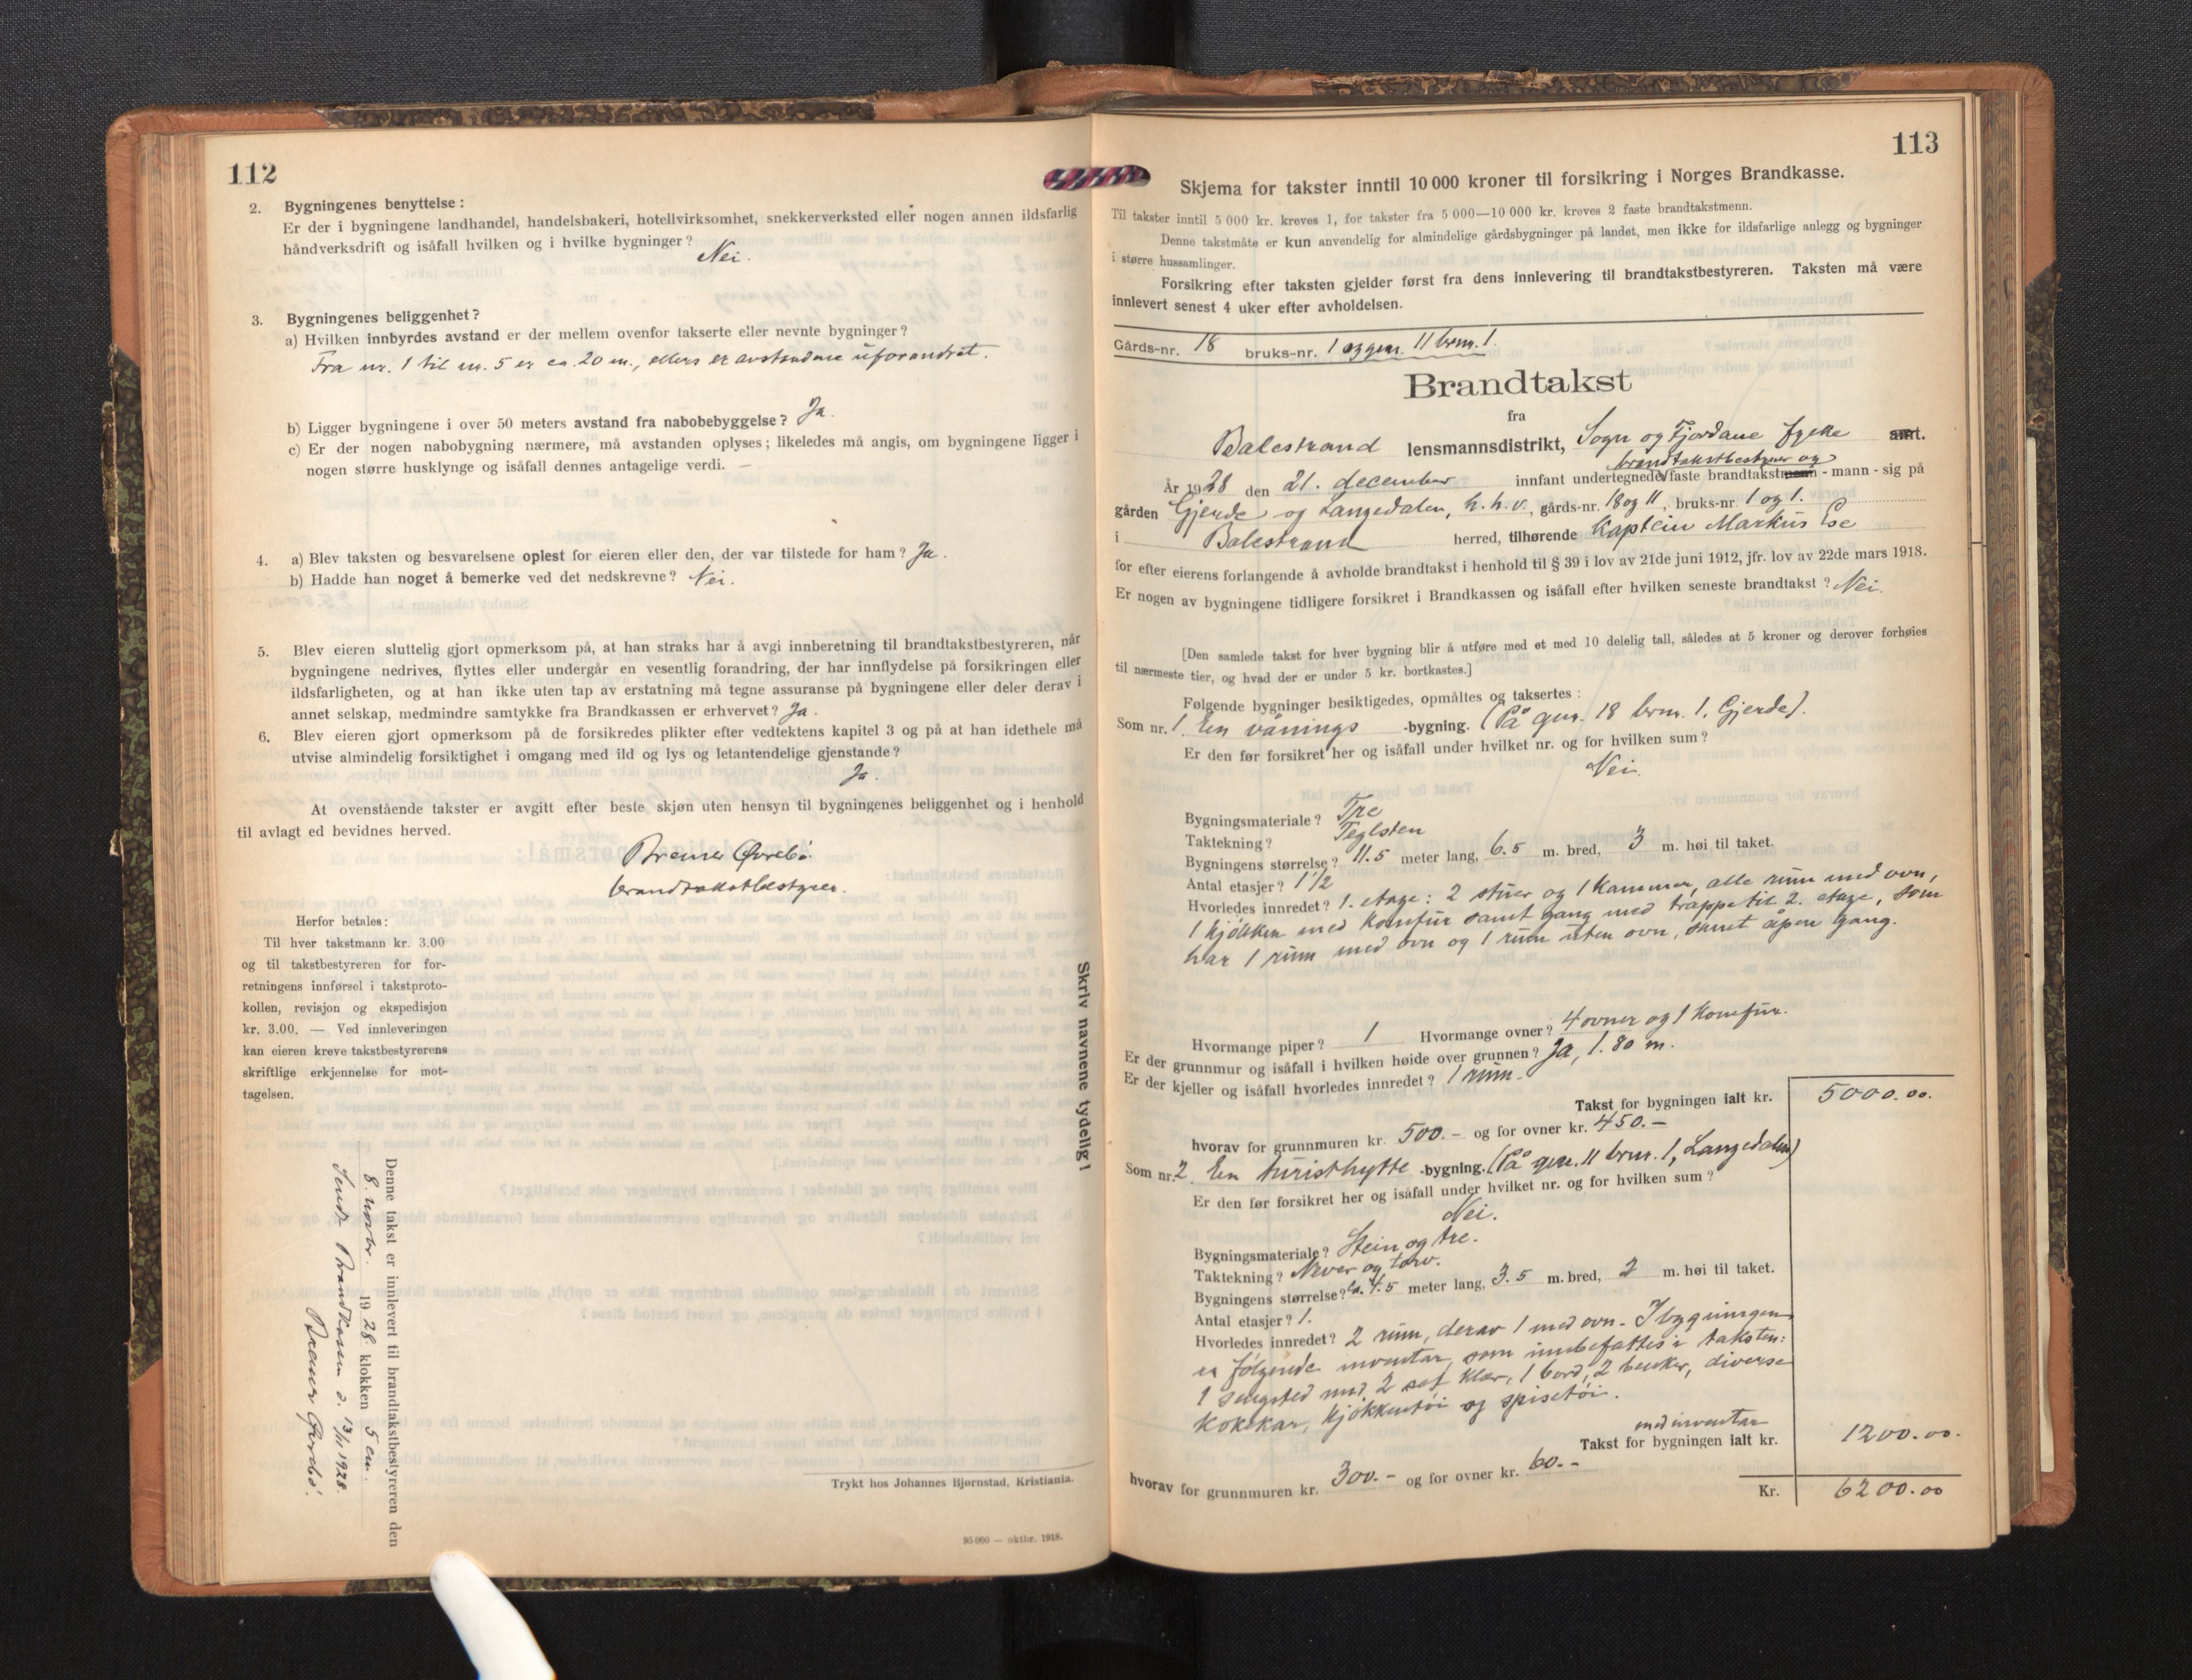 112
2. Bygningenes benyttelse:
Er der i bygningene landhandel, handelsbakeri, hotellvirksomhet, snekkerverksted eller nogen annen ildsfarlig
håndverksdrift og isåfall hvilken og i hvilke bygninger? Nei.
3. Bygningenes beliggenhet?
a) Hvilken innbyrdes avstand er der mellem ovenfor takserte eller nevnte bygninger?
Fra nr. 1 til nr. 5 er ca. 20 m., ellers er avstandene uforandret.
b) Ligger bygningene i over 50 meters avstand fra nabobebyggelse? Ja.
c) Er der nogen nabobygning nærmere, må avstanden oplyses; likeledes må angis, om bygningene ligger i
nogen større husklynge og isåfall dennes antagelige verdi. —
4. a) Blev taksten og besvarelsene oplest for eieren eller den, der var tilstede for ham? Ja.
b) Hadde han noget å bemerke ved det nedskrevne? Nei.
5. Blev eieren sluttelig gjort opmerksom på, at han straks har å avgi innberetning til brandtakstbestyreren, når
bygningene nedrives, flyttes eller undergår en vesentlig forandring, der har innflydelse på forsikringen eller
ildsfarligheten, og at han ikke uten tap av erstatning må tegne assuranse på bygningene eller deler derav i
annet selskap, medmindre samtykke fra Brandkassen er erhvervet? Ja.
6. Blev eieren gjort opmerksom på de forsikredes plikter efter vedtektens kapitel 3 og på at han idethele må
utvise almindelig forsiktighet i omgang med ild og lys og letantendelige gjenstande?
Ja.
At ovenstående takster er avgitt efter beste skjøn uten hensyn til bygningenes beliggenhet og i henhold
til avlagt ed bevidnes herved.
Bremer Øvrebø.
brandtakstbestyrer.
Herfor betales:
Til hver takstmann kr. 3.00
og til takstbestyreren for for-
retningens innførsel i takstproto-
kollen, revisjon og ekspedisjon
kr. 3.00. — Ved innleveringen
kan eieren kreve takstbestyrerens
skriftlige erkjennelse for mot-
tagelsen.
Denne takst er innlevert til brandtakstbestyreren den
8. novbr. 1928 klokken 5 em.
Sendt Brandkassen d. 13/11 1928.
Bremer Øvrebø.
Skriv navnene tydelig!
Trykt hos Johannes Bjørnstad, Kristiania.
95 000 — oktbr. 1918.
113
Skjema for takster inntil 10 000 kroner til forsikring i Norges Brandkasse.
Til takster inntil 5 000 kr. kreves 1, for takster fra 5 000—10 000 kr. kreves 2 faste brandtakstmenn.
Denne takstmåte er kun anvendelig for almindelige gårdsbygninger på landet, men ikke for ildsfarlige anlegg og bygninger
i større hussamlinger.
Forsikring efter taksten gjelder først fra dens innlevering til brandtakstbestyreren. Taksten må være
innlevert senest 4 uker efter avholdelsen.
Gårds-nr. 18 bruks-nr. 1 og gnr. 11 brnr. 1.
Brandtakst
fra
Balestrand lensmannsdistrikt, Sogn og Fjordane fylke amt.
brandtakstbestyrer og
År 1928 den 21. december innfant undertegnede faste brandtakstmenn - mann - sig på
gården Gjerde og Langedalen, h. h. v., gårds-nr. 18 og 11, bruks-nr. 1 og 1.
i Balestrand herred, tilhørende Kaptein Markus Ese
for efter eierens forlangende å avholde brandtakst i henhold til § 39 i lov av 21de juni 1912, jfr. lov av 22de mars 1918.
Er nogen av bygningene tidligere forsikret i Brandkassen og isåfall efter hvilken seneste brandtakst? Nei.
[Den samlede takst for hver bygning blir å utføre med et med 10 delelig tall, således at 5 kroner og derover forhøies
til nærmeste tier, og hvad der er under 5 kr. bortkastes.]
Følgende bygninger besiktigedes, opmåltes og taksertes:
Som nr. 1 En vånings -bygning. (På gnr. 18 brnr. 1. Gjerde).
Er den før forsikret her og isåfall under hvilket nr. og for hvilken sum?
Nei.
Bygningsmateriale? Tre
Taktekning? Teglsten
Bygningens størrelse? 11.5 meter lang, 6.5 m. bred, 3 m. høi til taket.
Antal etasjer? 1½
Hvorledes innredet? 1. etage: 2 stuer og 1 kammer, alle rum med ovn,
1 kjøkken med komfur samt gang med trappe til 2. etage, som
har 1 rum med ovn og 1 rum uten ovn, samt åpen gang.
Hvormange piper? 1 Hvormange ovner? 4 ovner og 1 komfur.
Er der grunnmur og isåfall i hvilken høide over grunnen? Ja, 1.80 m.
Er der kjeller og isåfall hvorledes innredet? 1 rum.
Takst for bygningen ialt kr. 5000.00.
hvorav for grunnmuren kr. 500.— og for ovner kr. 450.—
Som nr. 2. En turisthytte -bygning. (På gnr. 11 brnr. 1, Langedalen)
Er den før forsikret her og isåfall under hvilket nr. og for hvilken sum?
Nei.
Bygningsmateriale? Stein og tre.
Taktekning? Never og torv.
Bygningens størrelse? ca. 7.5 meter lang, 3.5 m. bred, 2 m. høi til taket.
Antal etasjer? 1.
Hvorledes innredet? 2 rum, derav 1 med ovn. I bygningen
er følgende inventar, som innbefattes i taksten:
1 sengsted med 2 set klær, 1 bord, 2 benker, diverse
kokekar, kjøkkentøi og spisetøi.
med inventar
Takst for bygningen ialt kr. 1200.00.
hvorav for grunnmuren kr. 300.— og for ovner kr. 60.—
Kr. 6200.00